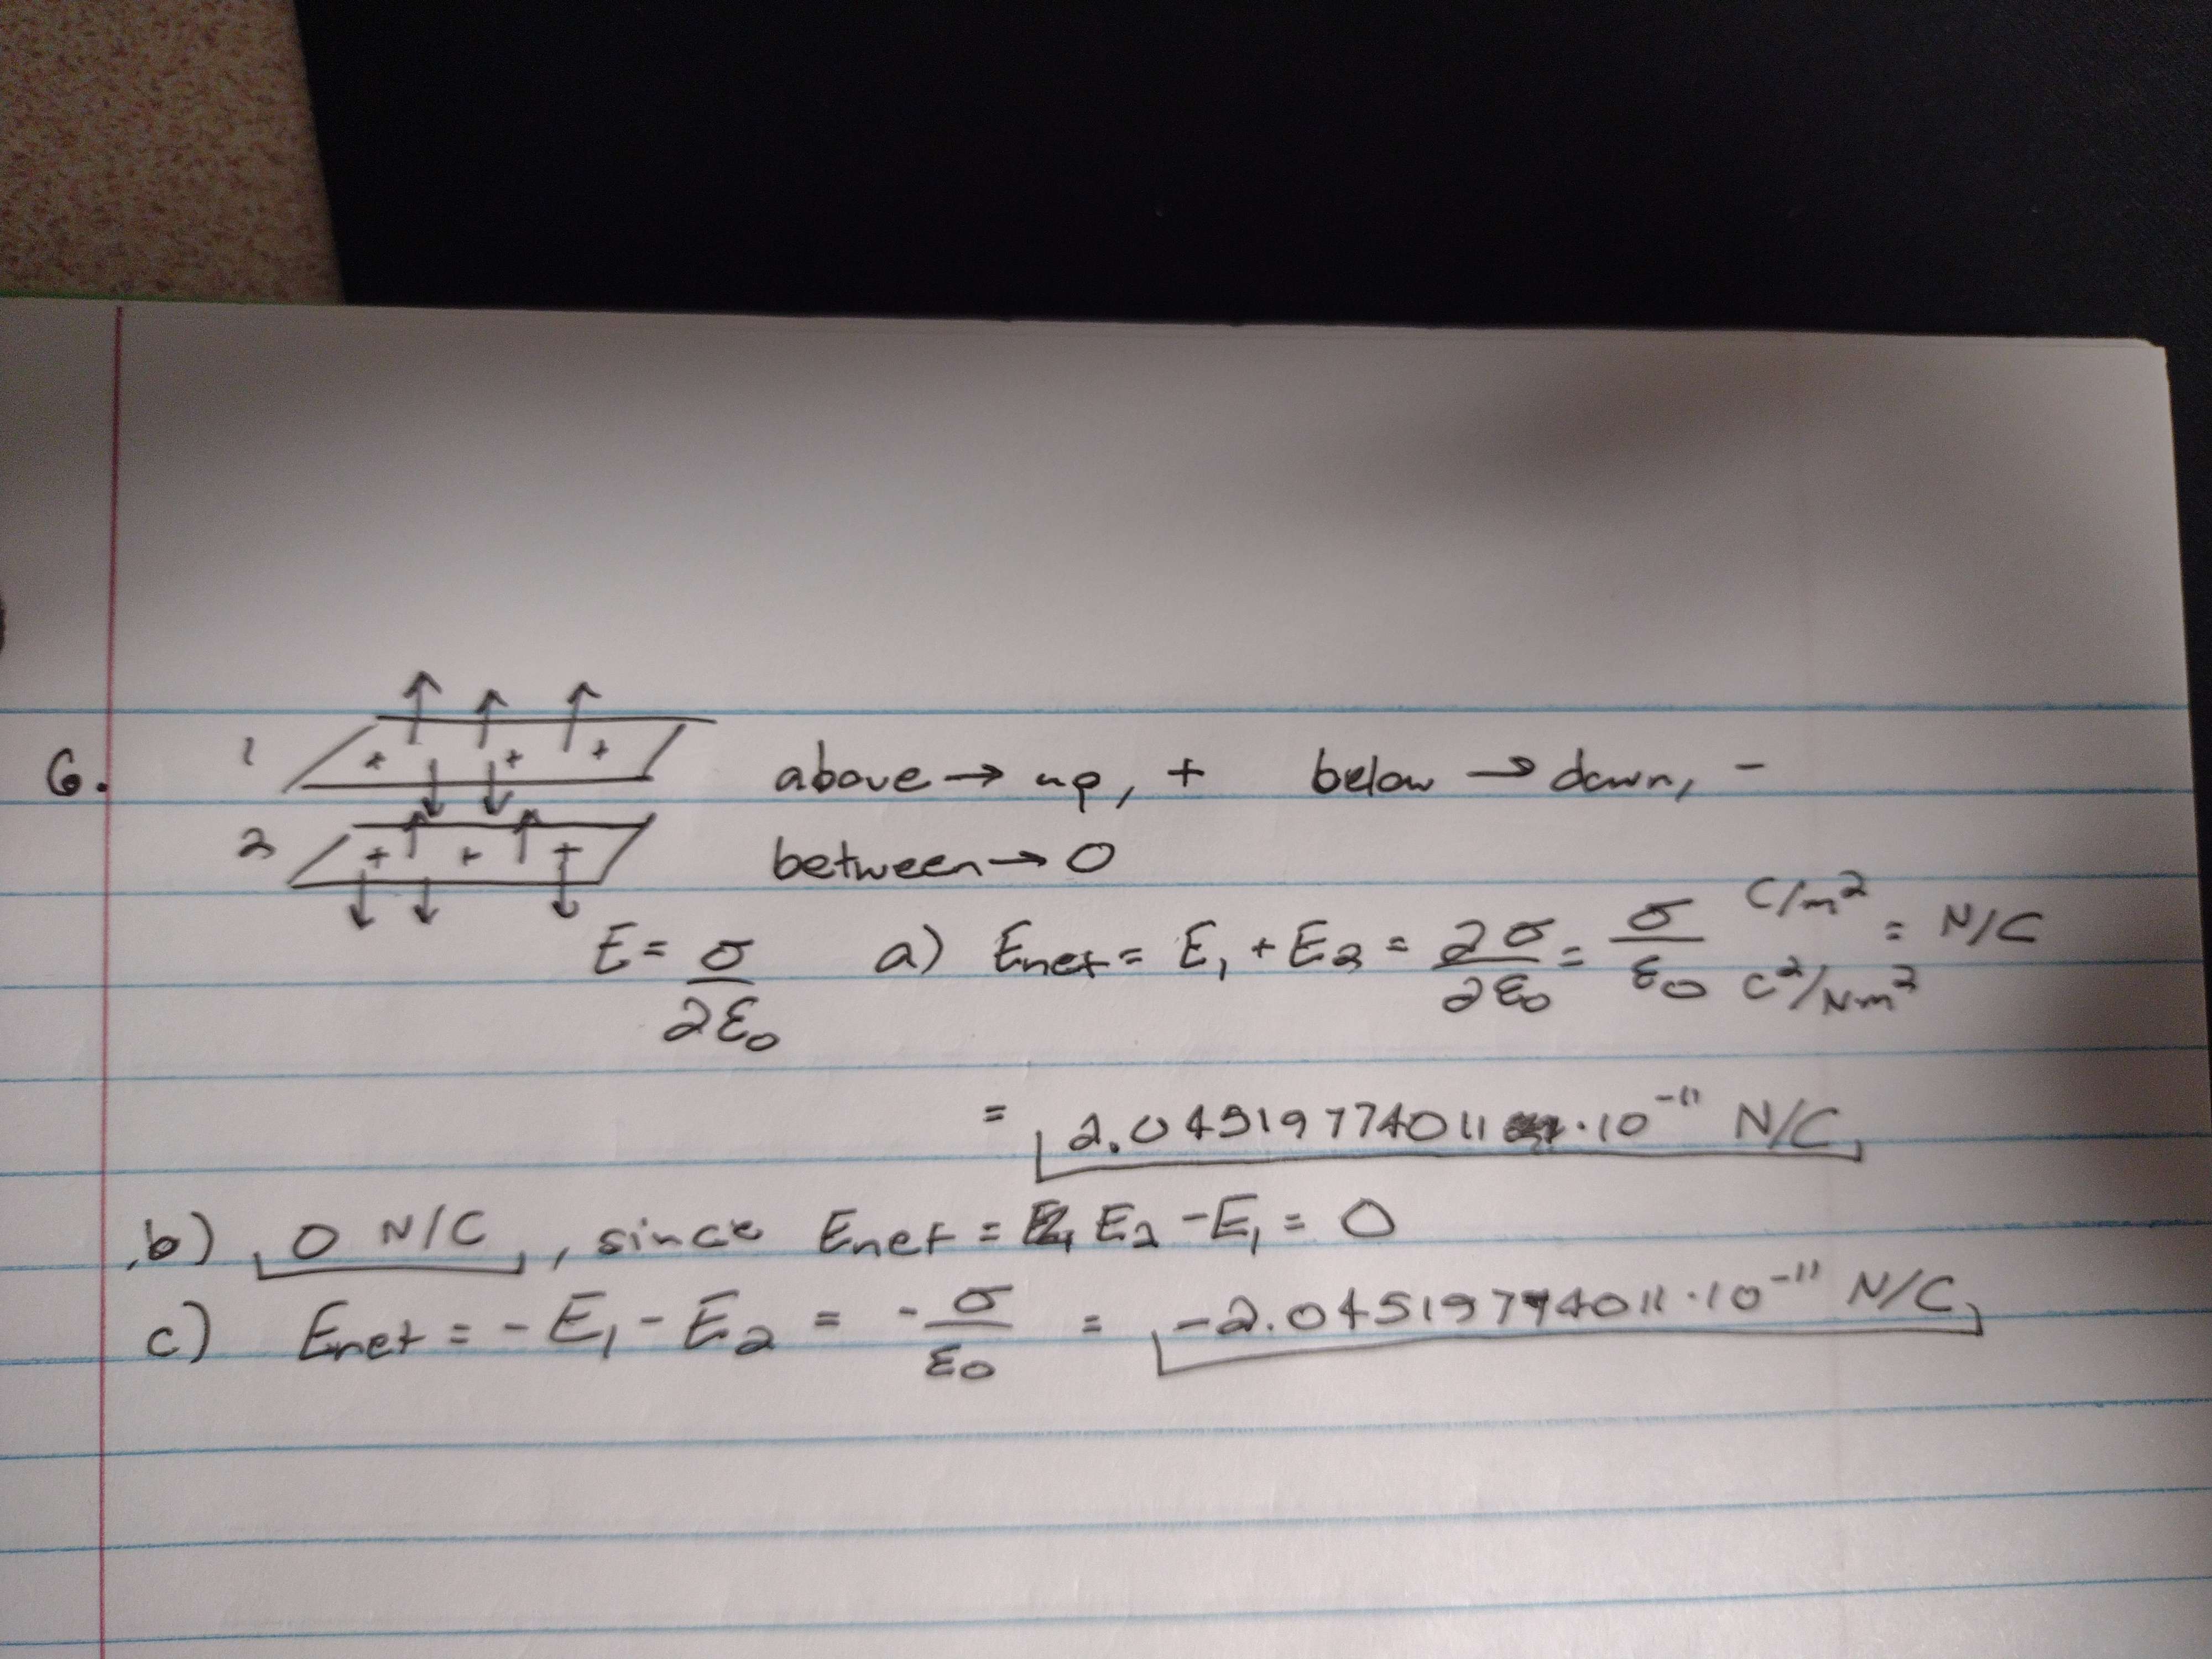 6. 1 + + + above → up, + below → down, -
2 + + + between → 0
E = σ/2ε₀ a) Enet = E₁ + E₂ = 2σ/2ε₀ = σ/ε₀ C/m²/C²/Nm² = N/C
= 2.04519774011 · 10⁻¹¹ N/C
b) 0 N/C, since Enet = E₂ - E₁ = 0
c) Enet = -E₁ - E₂ = -σ/ε₀ = -2.04519774011 · 10⁻¹¹ N/C